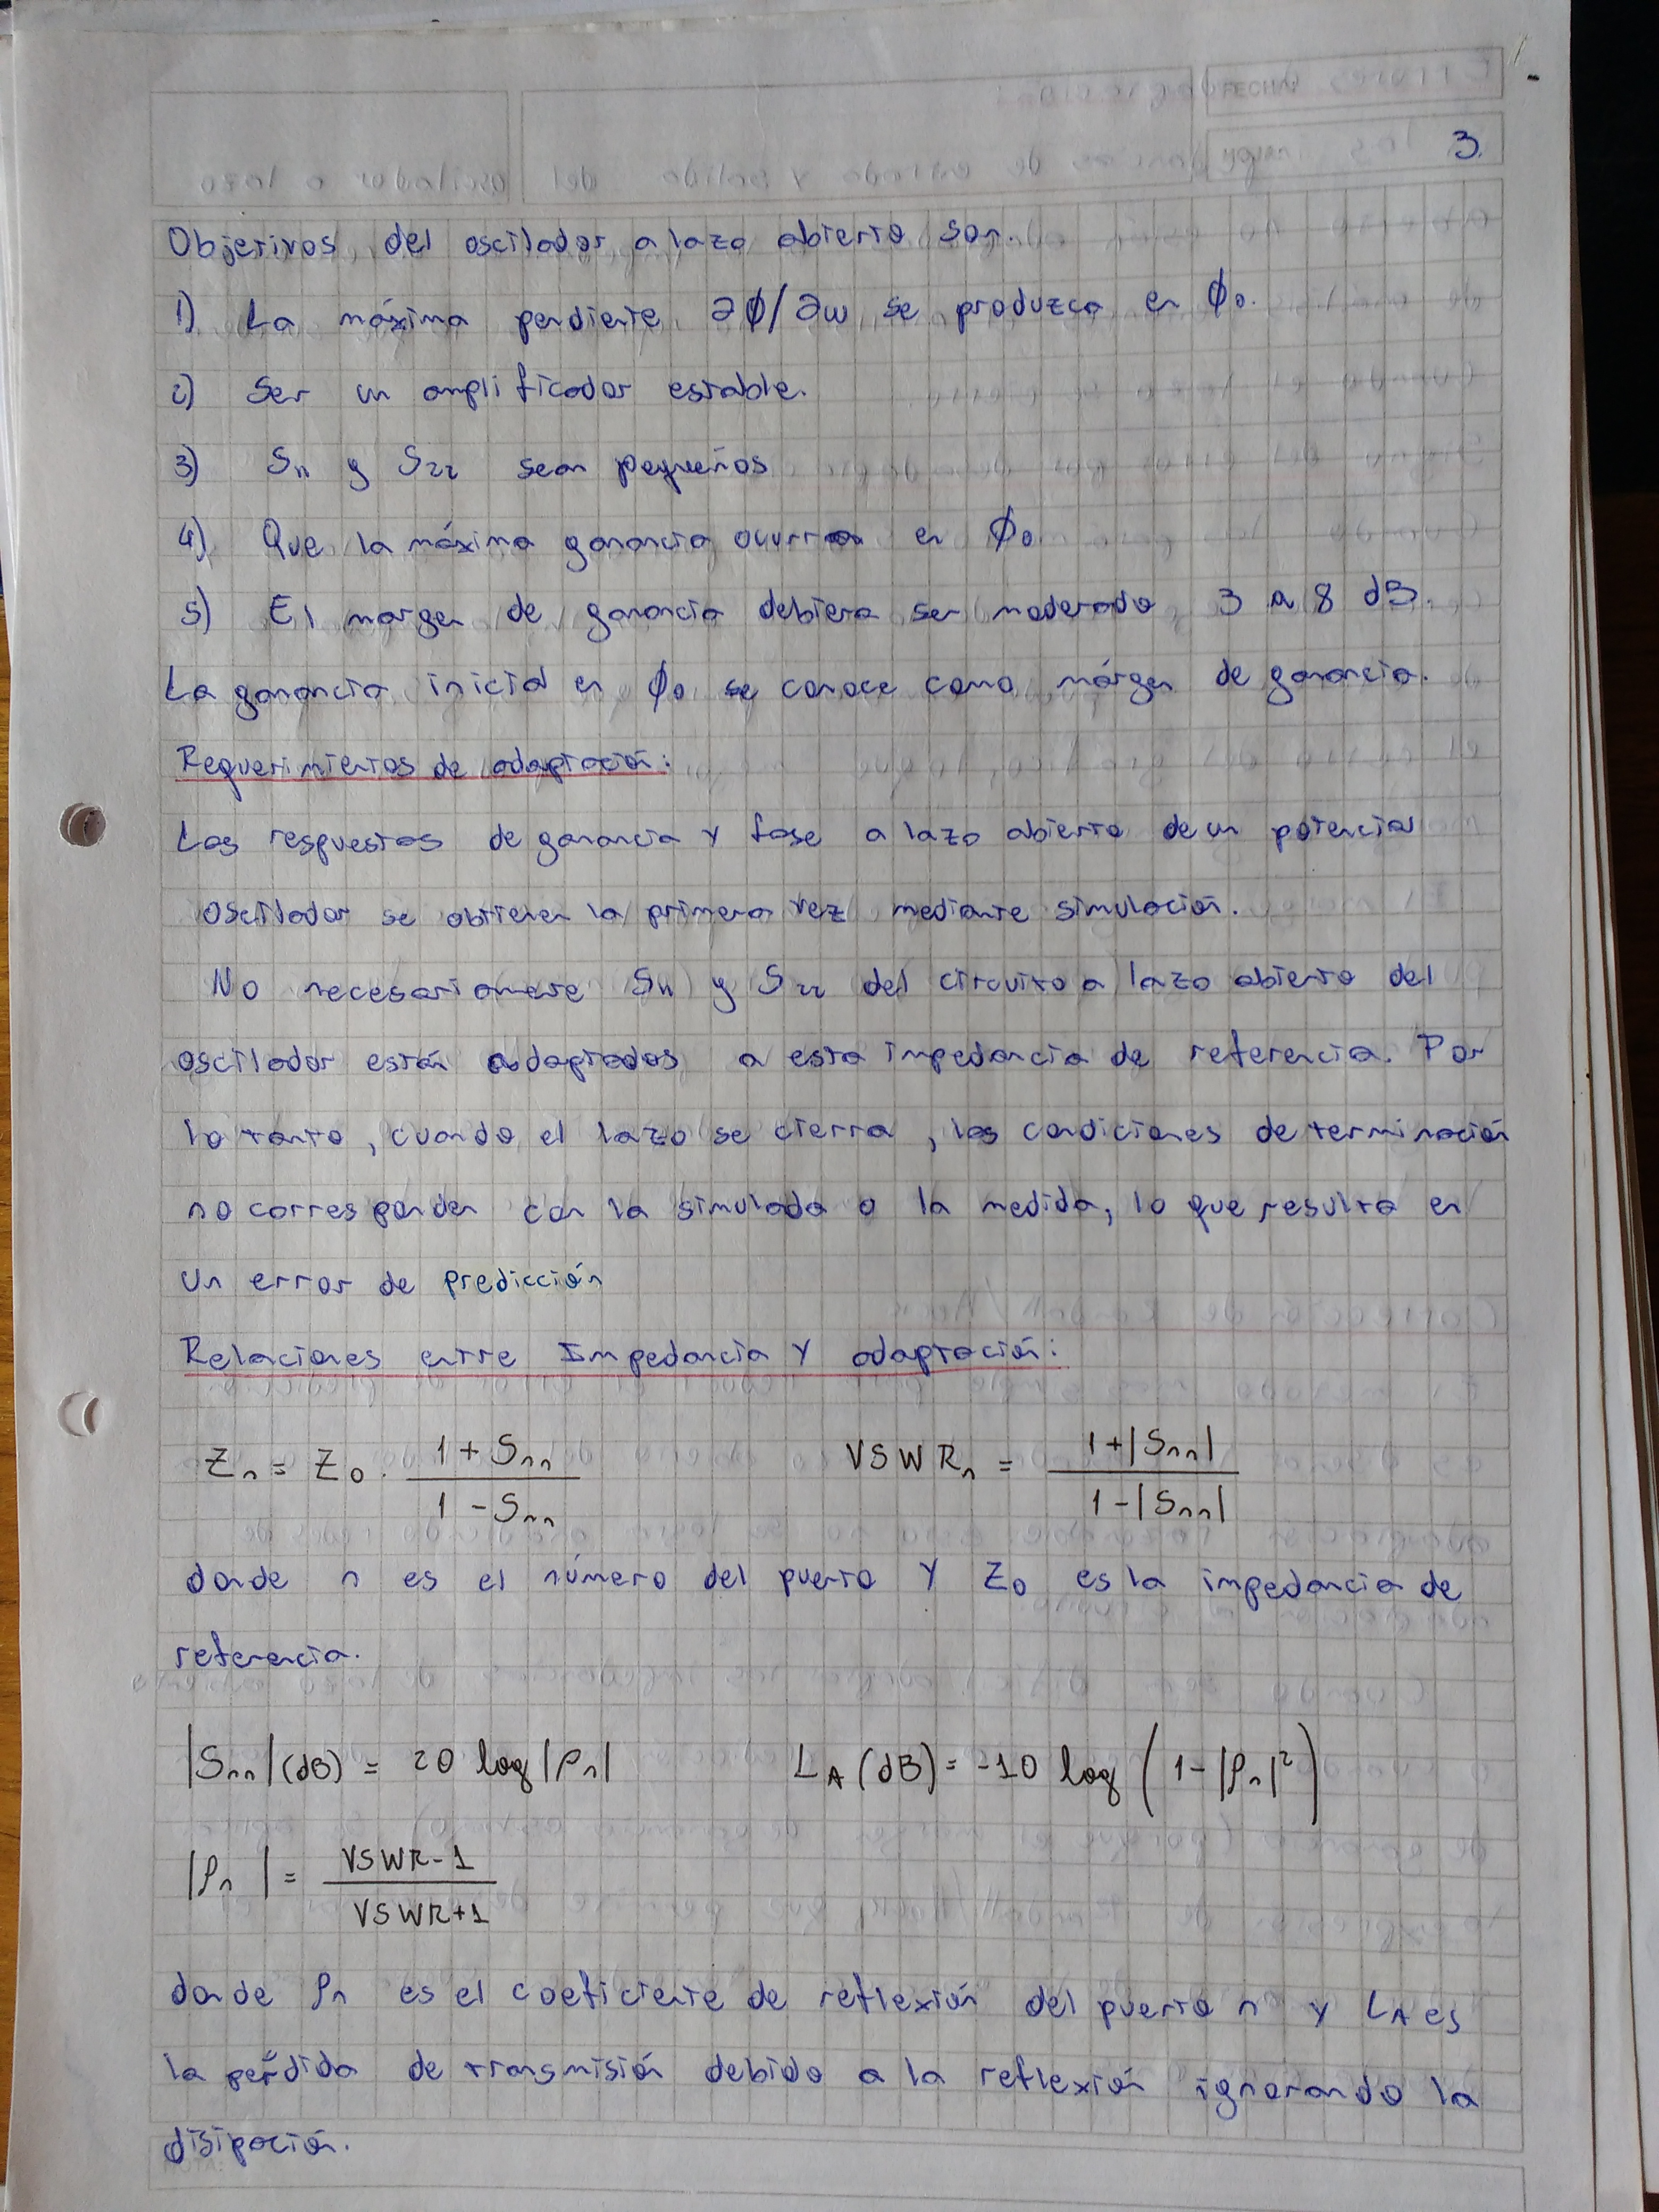 FECHA
3.
Objetivos del oscilador a lazo abierto son.
1) La máxima pendiente ∂ϕ/∂ω se produzca en ϕ₀.
2) Ser un amplificador estable.
3) S₁₁ y S₂₂ sean pequeños
4) Que la máxima ganancia ocurra en ϕ₀
5) El margen de ganancia debiera ser moderado, 3 a 8 dB.
La ganancia inicial en ϕ₀ se conoce como márgen de ganancia.
Requerimientos de adaptación:
Las respuestas de ganancia y fase a lazo abierto de un potencial
oscilador se obtienen la primera vez mediante simulación.
No necesariamente S₁₁ y S₂₂ del circuito a lazo abierto del
oscilador están adaptados a esta impedancia de referencia. Por
lo tanto, cuando el lazo se cierra, las condiciones de terminación
no corresponden con la simulada o la medida, lo que resulta en
un error de predicción
Relaciones entre Impedancia y adaptación:
Zₙ = Z₀ · (1 + Sₙₙ) / (1 - Sₙₙ)   VSWRₙ = (1+|Sₙₙ|) / (1-|Sₙₙ|)
donde n es el número del puerto y Z₀ es la impedancia de
referencia.
|Sₙₙ|(dB) = 20 log|ρₙ|   L_A (dB) = -10 log (1-|ρₙ|²)
|ρₙ| = (VSWR-1) / (VSWR+1)
donde ρₙ es el coeficiente de reflexión del puerto n y L_A es
la pérdida de transmisión debido a la reflexión ignorando la
disipación.